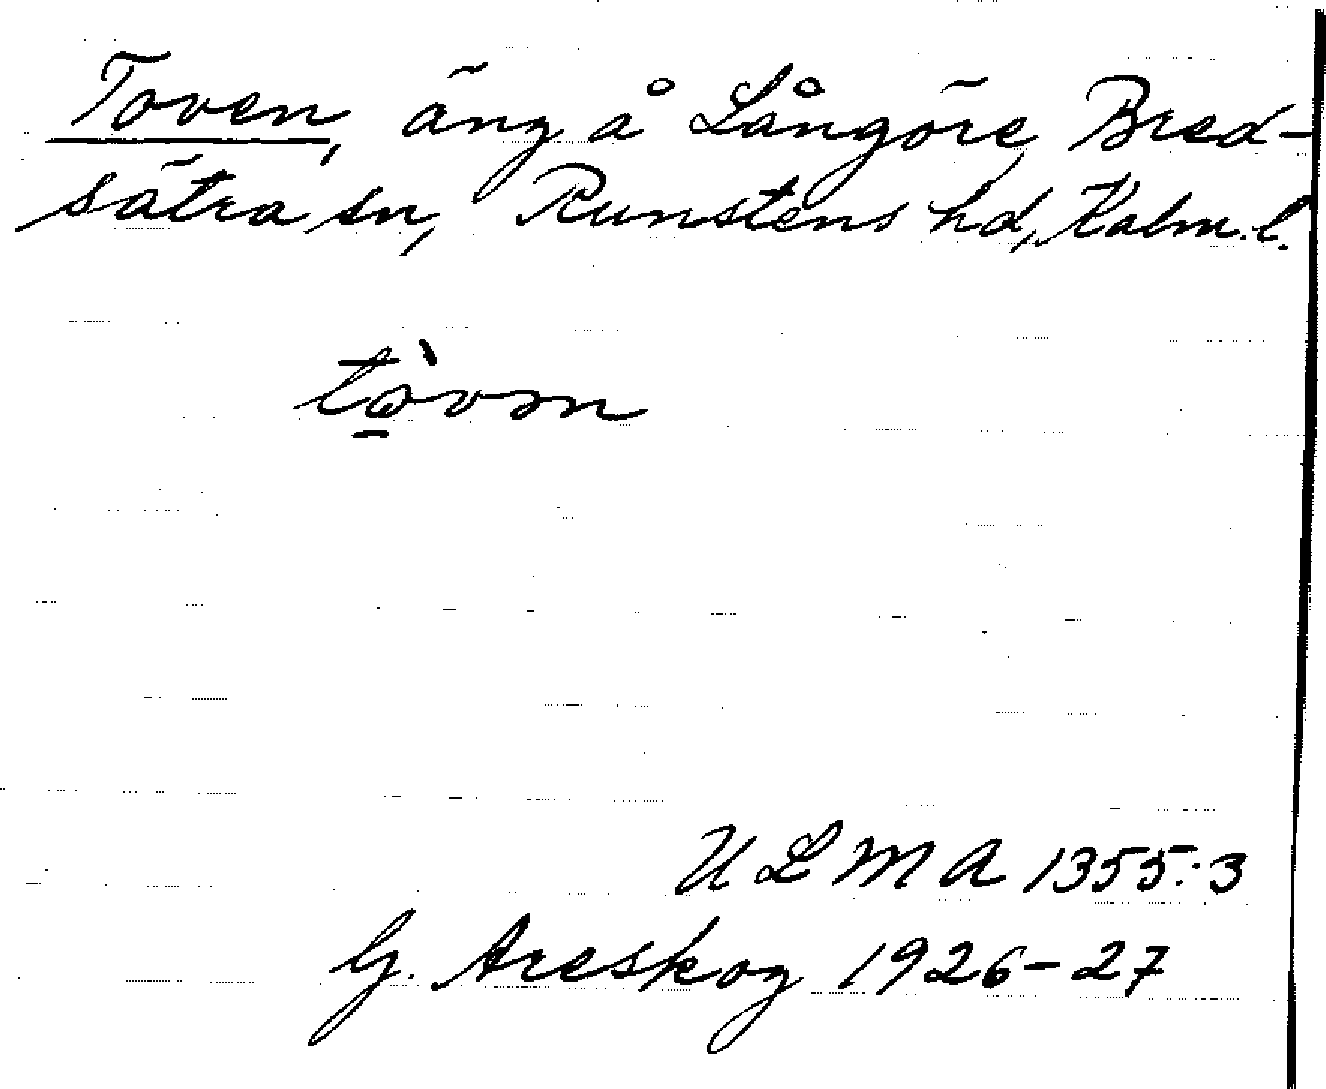 Toven, äng å Långöre, Bred-
sätra sn, Runstens hd, Kalm. l.
ULMA 1355:3
G. Areskog 1926-27